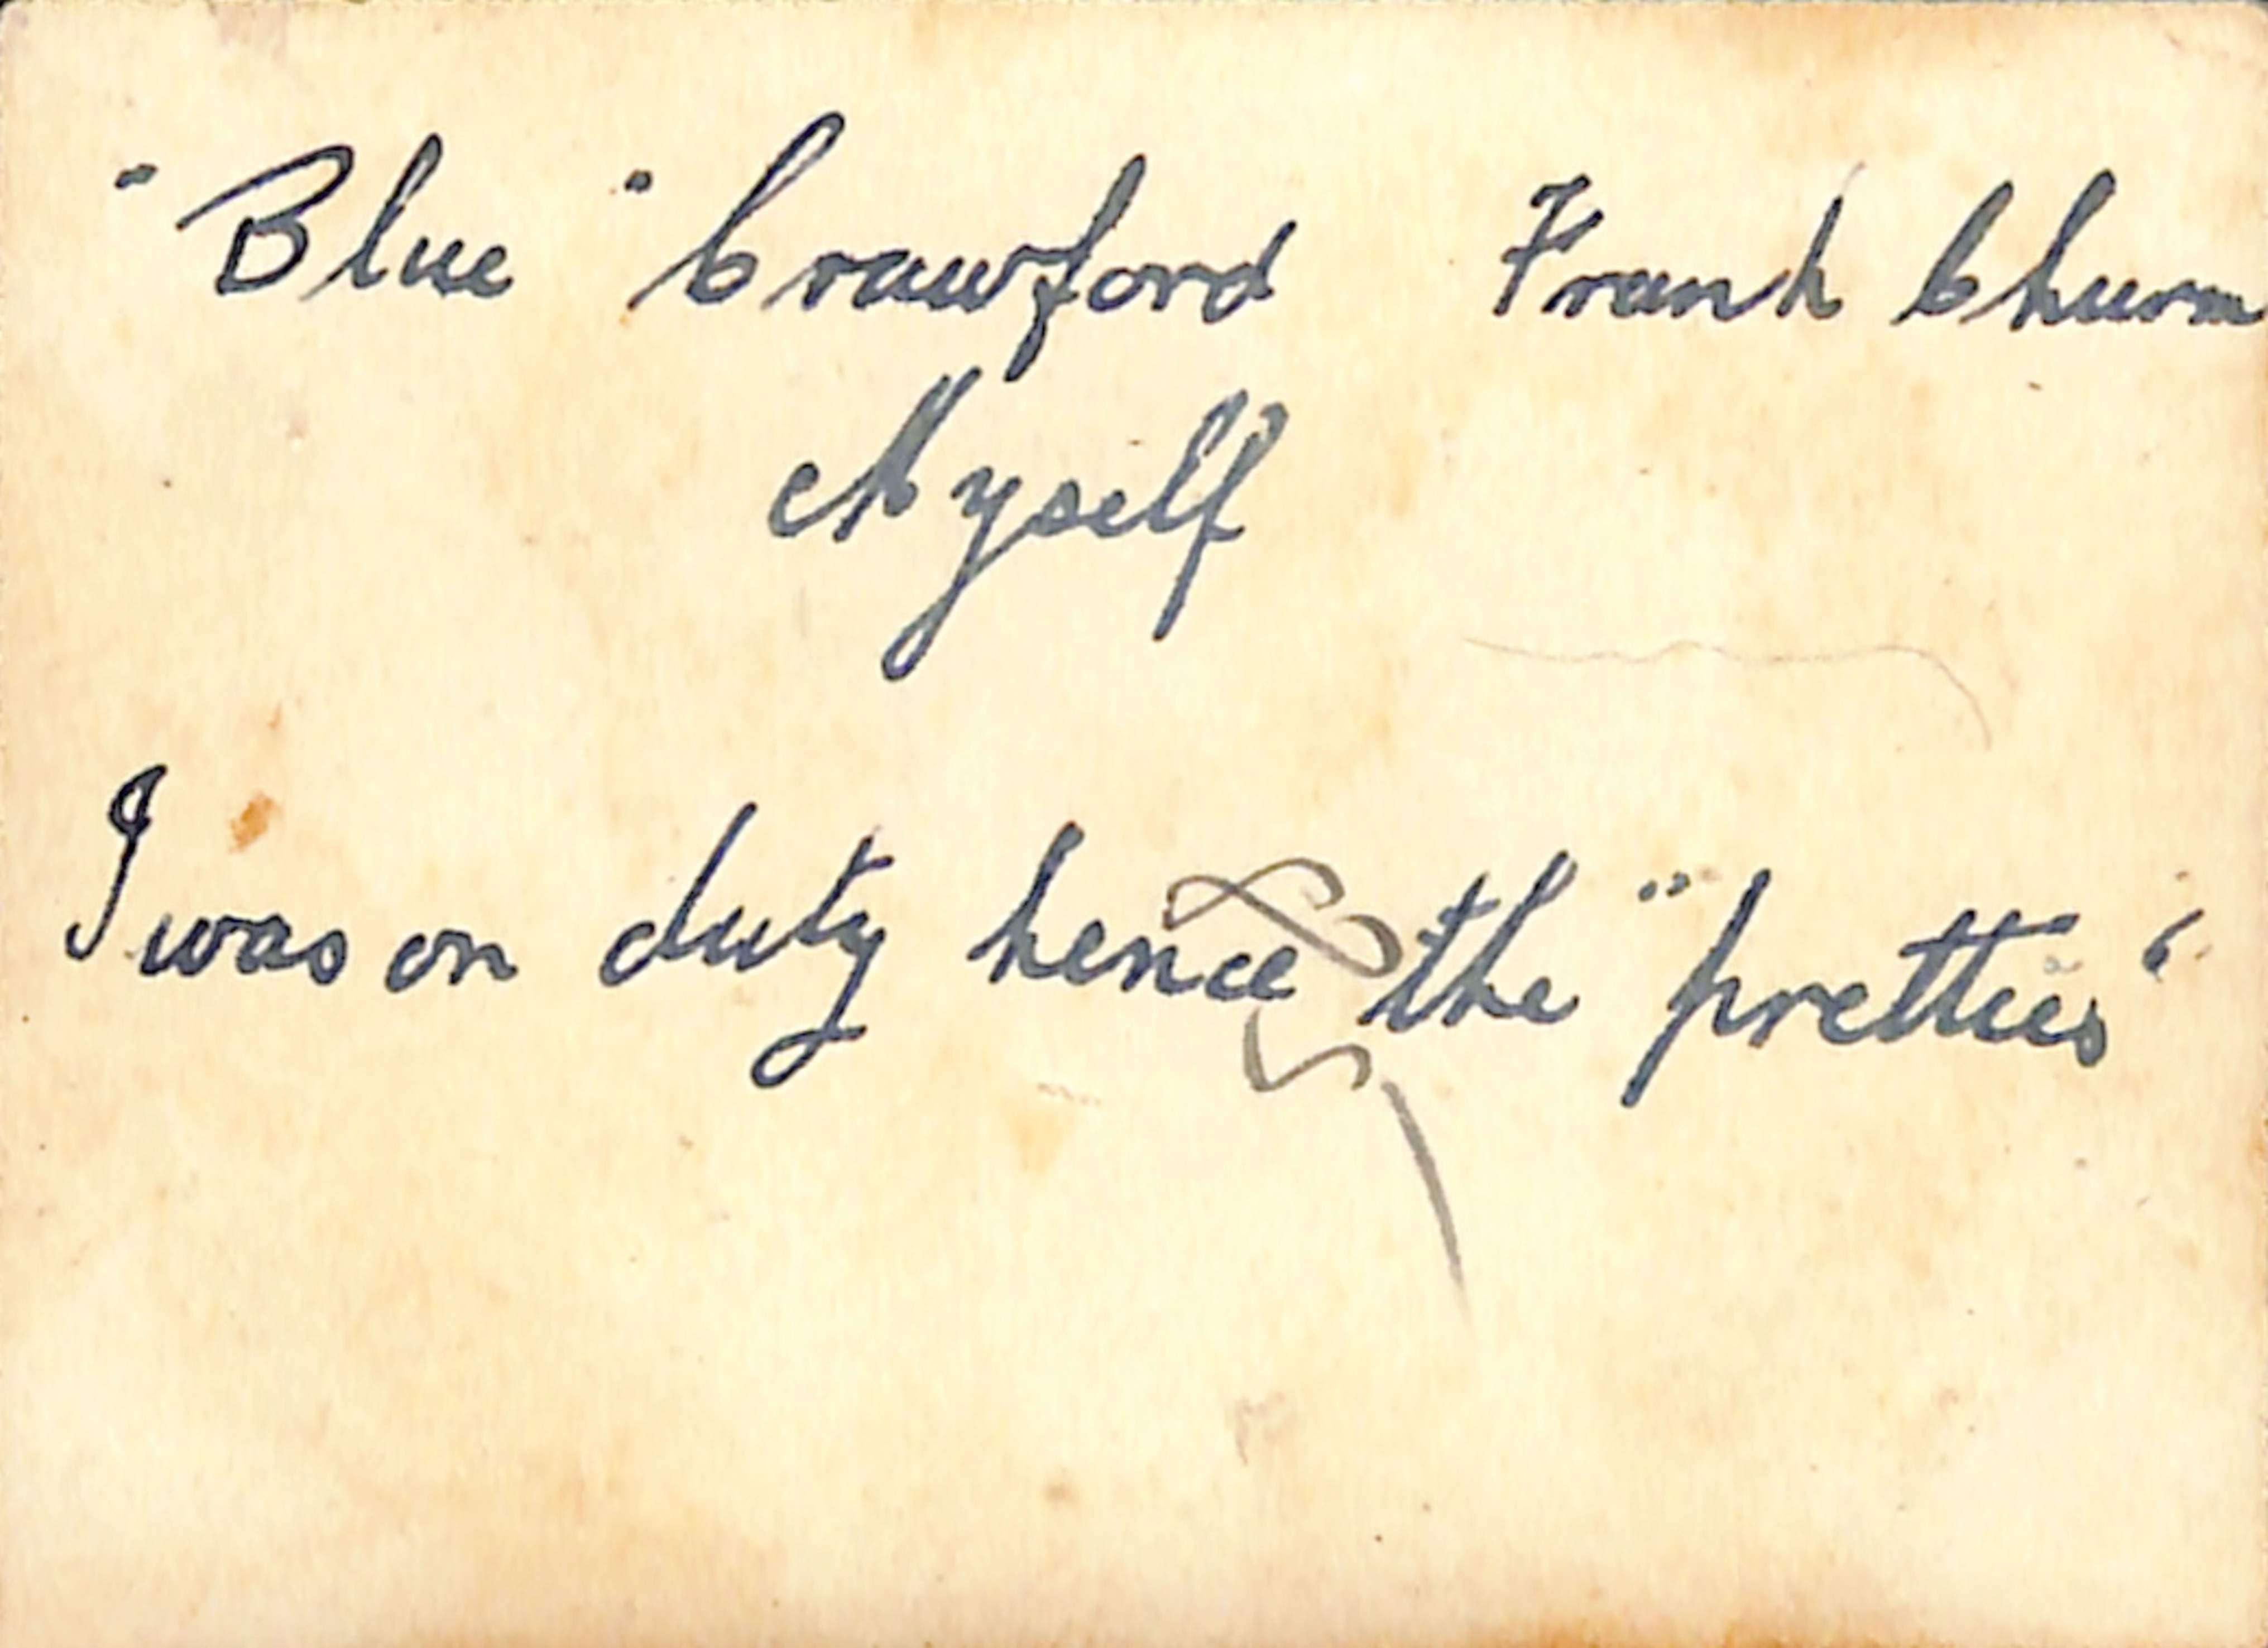 "Blue" Crawford Frank Churm
Myself
I was on duty hence the "pretties"